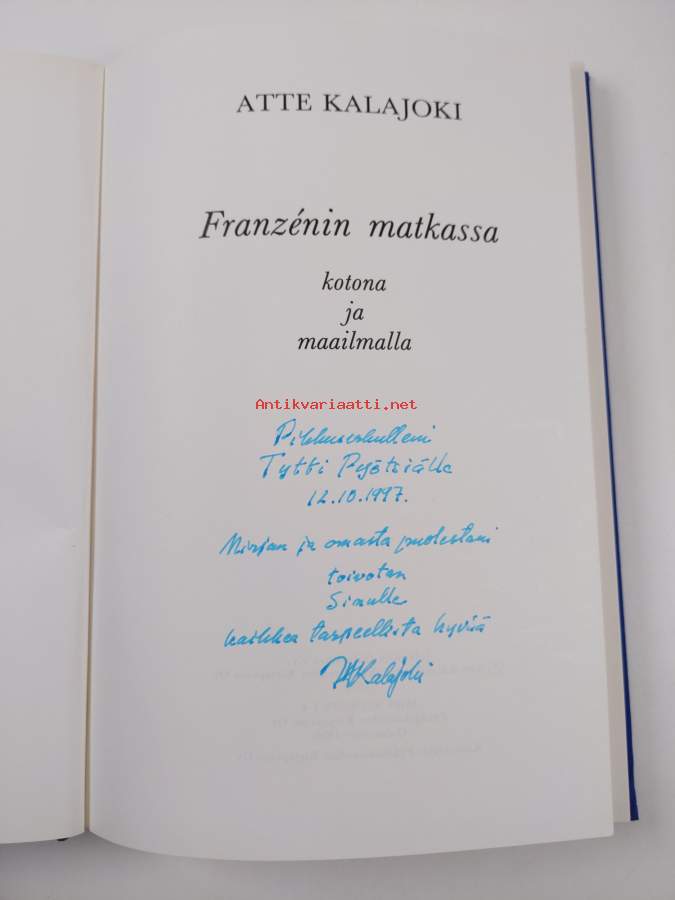 ATTE KALAJOKI
Franzénin matkassa
kotona
ja
maailmalla
Antikvariaatti.net
Pikkuserkulleni
Tytti
12.10.1997.
Mirjan ja omasta puolestani
toivotan
Sinulle
kaikkea tarpeellista hyvää
Kalajoki